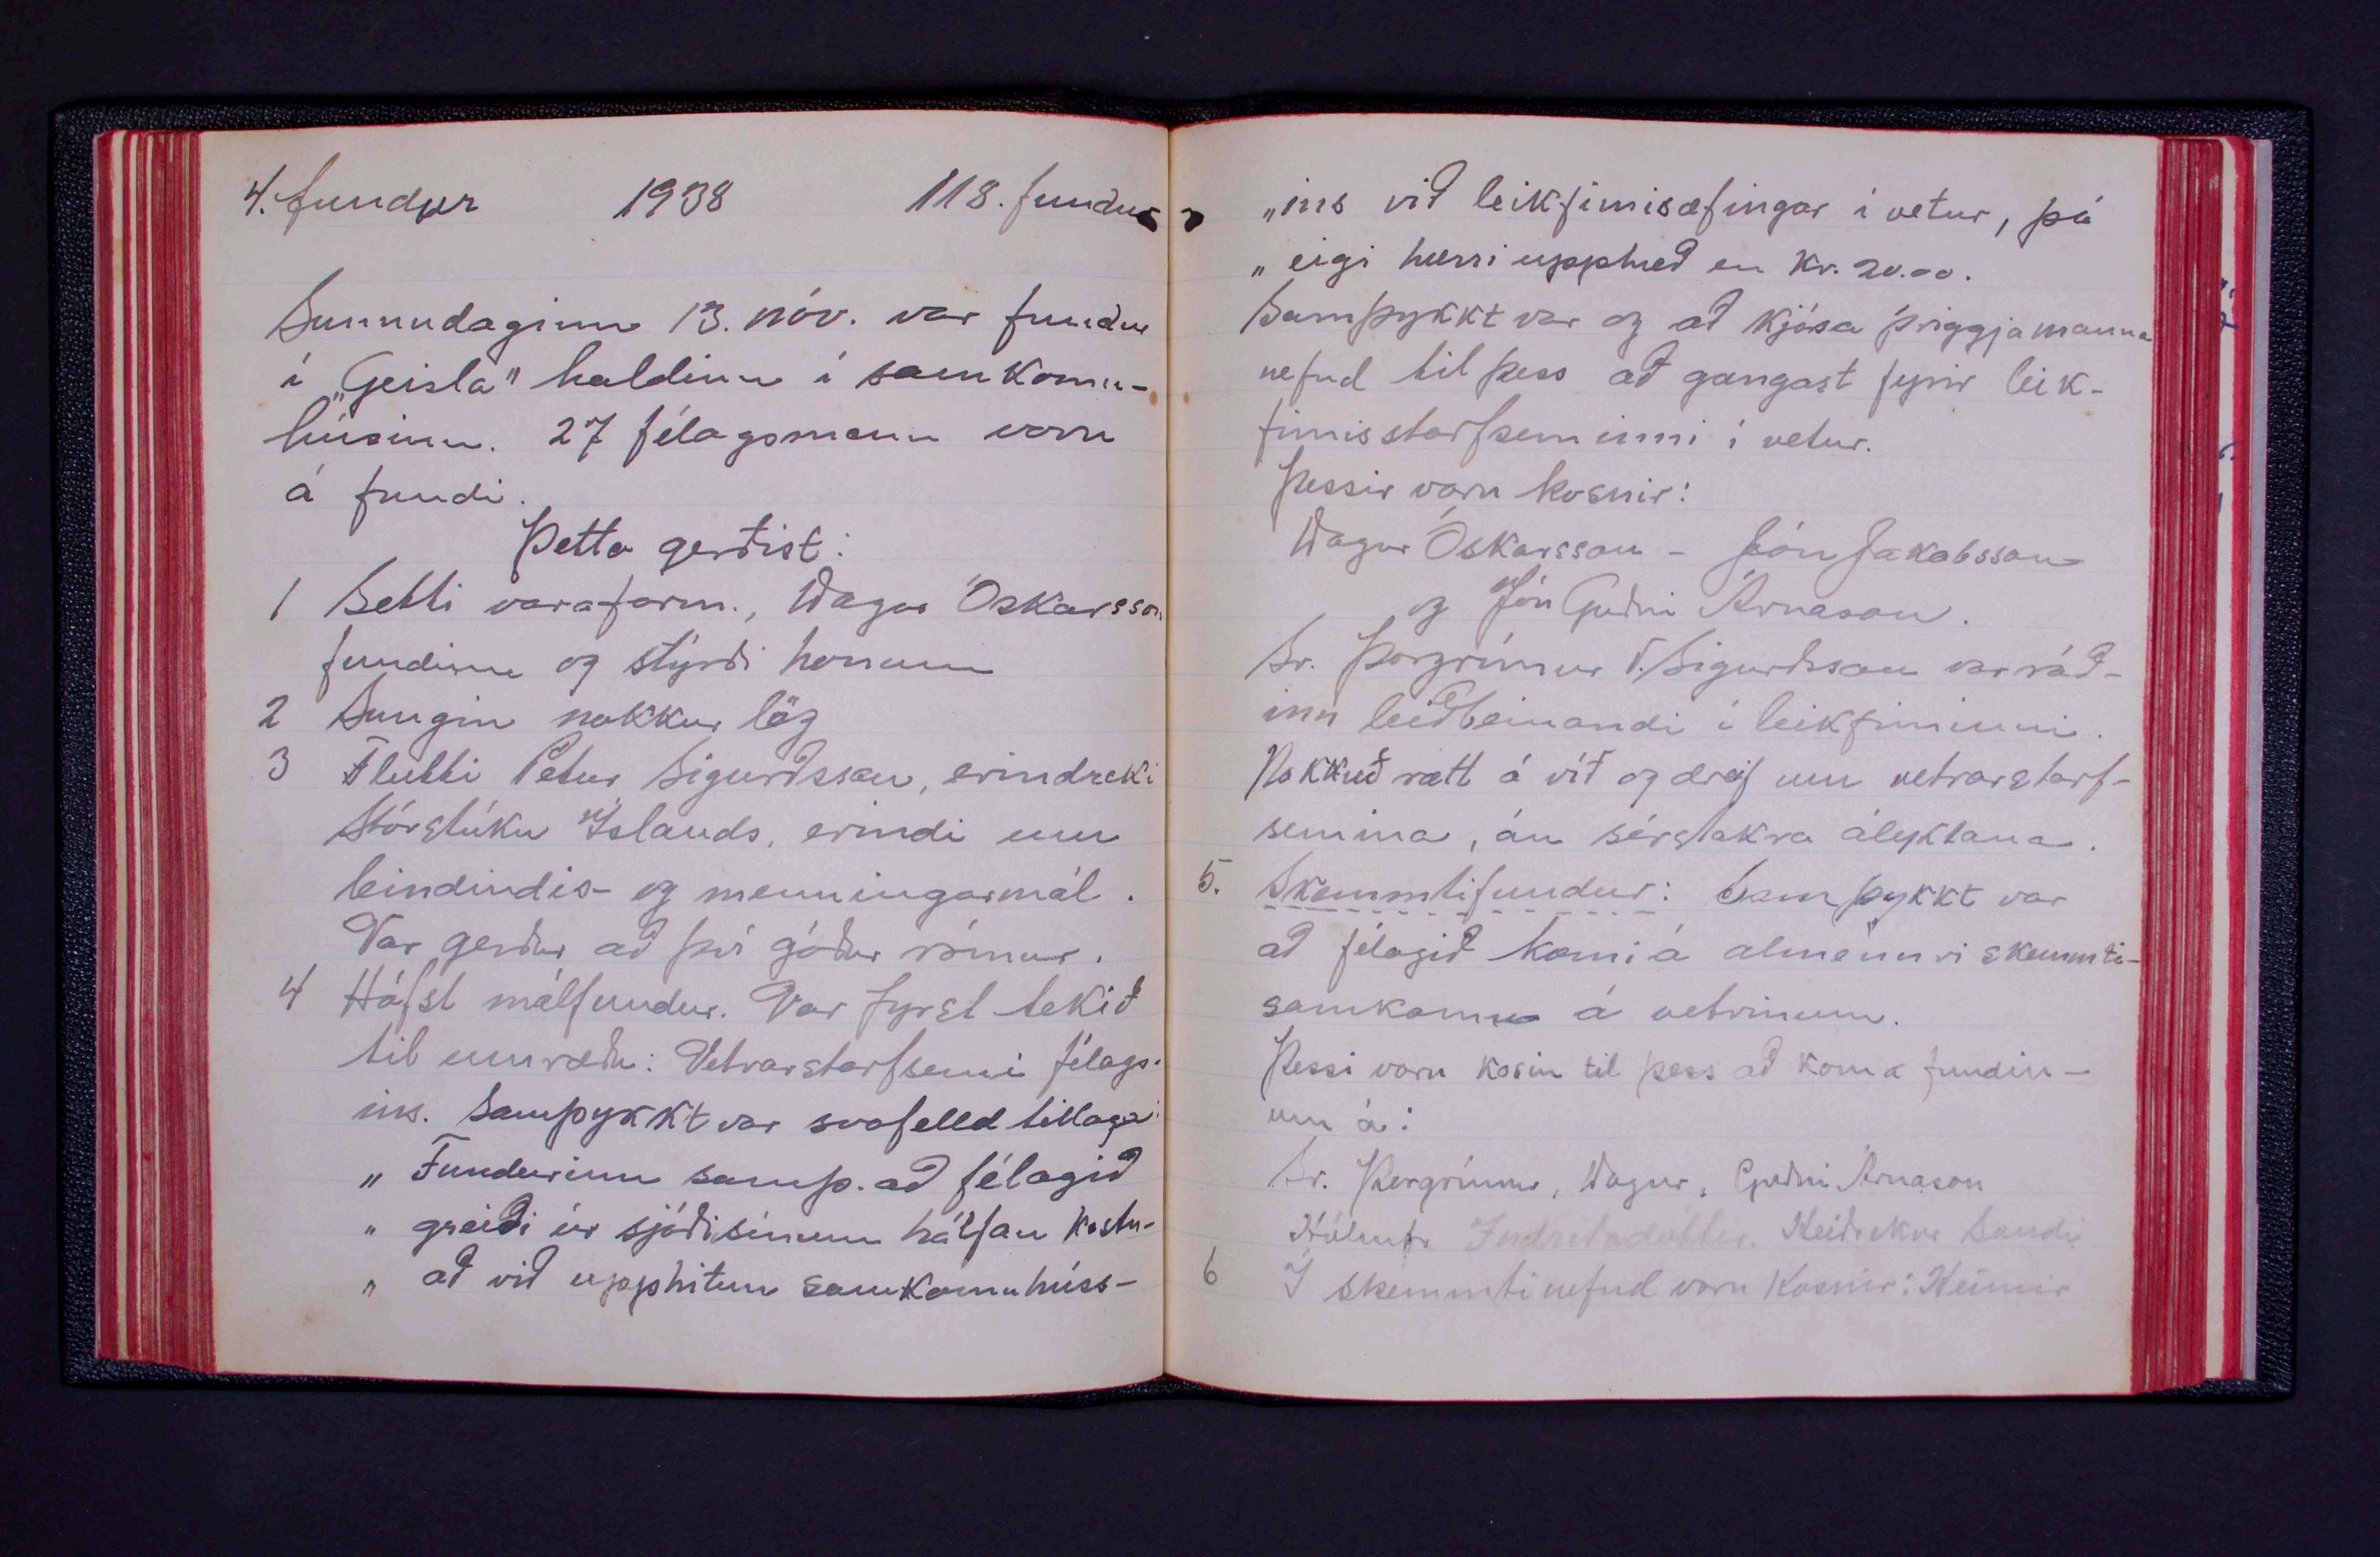 4. fundur 1938 118. fundur
Sunnudaginn 13. nóv. var fundur
í „Geisla" haldinn í samkomu-
húsinu. 27 félagsmenn voru
á fundi.
Þetta gerðist:
1 Setti varaform., Dagur Óskarsson
fundinn og stýrði honum
2 Sungin nokkur lög
3 Flutti Petur Sigurðsson, erindreki
Stórstúku Íslands, erindi um
bindindis- og menningarmál.
Var gerður að því góður rómur.
4 Hófst málfundur. Var fyrst tekið
til umræðu: Vetrarstarfsemi félags-
ins. Samþykkt var svofelld tillaga:
„ Fundurinn samþ. að félagið
„ greiði úr sjóði sínum hálfan kostn-
„ að við upphitun samkomuhúss-
„ins við leikfimisæfingar í vetur, þó
„ eigi hærri upphæð en kr. 20.00.
Samþykkt var og að kjósa þriggja manna
nefnd til þess að gangast fyrir leik-
fimisstarfseminni í vetur.
Þessir voru kosnir:
Dagur Óskarsson - Jón Jakobsson
og Jón Guðni Árnason.
Sr. Þorgrímur V. Sigurðsson var ráð-
inn leiðbeinandi í leikfiminni.
Nokkuð rætt á víð og dreif um vetrarstarf-
semina, án sérstakra ályktana.
5. Skemmtifundur: Samþykkt var
að félagið komi á almennri skemmti-
samkomu á vetrinum.
Þessi voru kosin til þess að koma fundin-
um á:
Sr. Þorgrímur, Dagur, Guðni Árnason
Hólmfr. Indriðadóttir. Heiðrekur Sandi
6 Í skemmtinefnd voru kosnir: Heimir